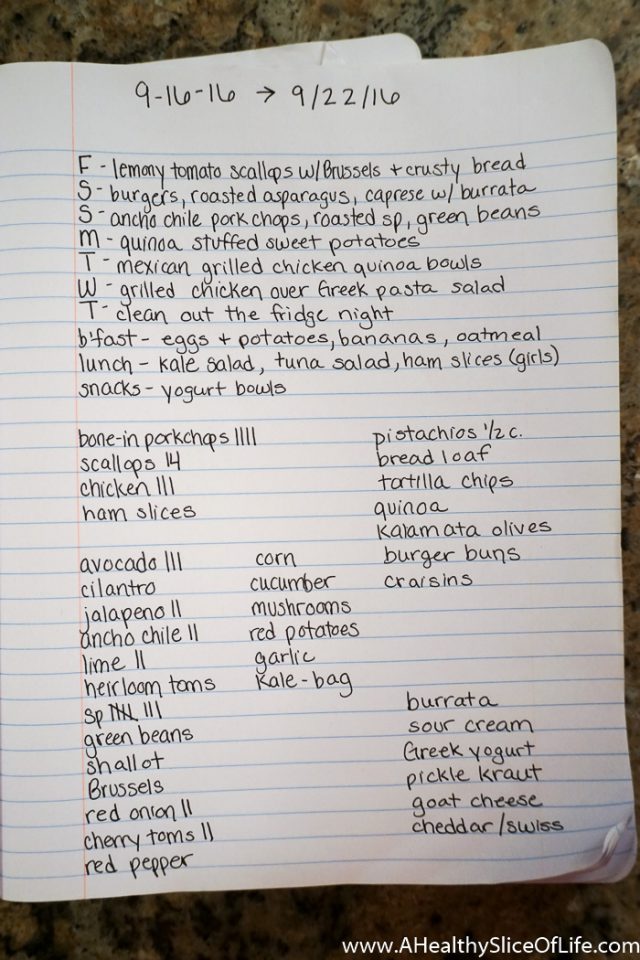 9-16-16 → 9/22/16
F - lemony tomato scallops w/Brussels + crusty bread
S - burgers, roasted asparagus, caprese w/ burrata
S - ancho chile pork chops, roasted sp, green beans
M - quinoa stuffed sweet potatoes
T - mexican grilled chicken quinoa bowls
W - grilled chicken over Greek pasta salad
T - clean out the fridge night
b'fast - eggs + potatoes, bananas, oatmeal
lunch - kale salad, tuna salad, ham slices (girls)
snacks - yogurt bowls
bone-in porkchops ||||
scallops 14
chicken |||
ham slices
pistachios 1/2 c.
bread loaf
tortilla chips
quinoa
kalamata olives
burger buns
craisins
avocado |||
cilantro
jalapeno ||
ancho chile ||
lime ||
heirloom toms
sp |||| |||
green beans
shallot
Brussels
red onion ||
cherry toms ||
red pepper
corn
cucumber
mushrooms
red potatoes
garlic
kale - bag
burrata
sour cream
Greek yogurt
pickle kraut
goat cheese
cheddar/swiss
www.AHealthySliceOfLife.com